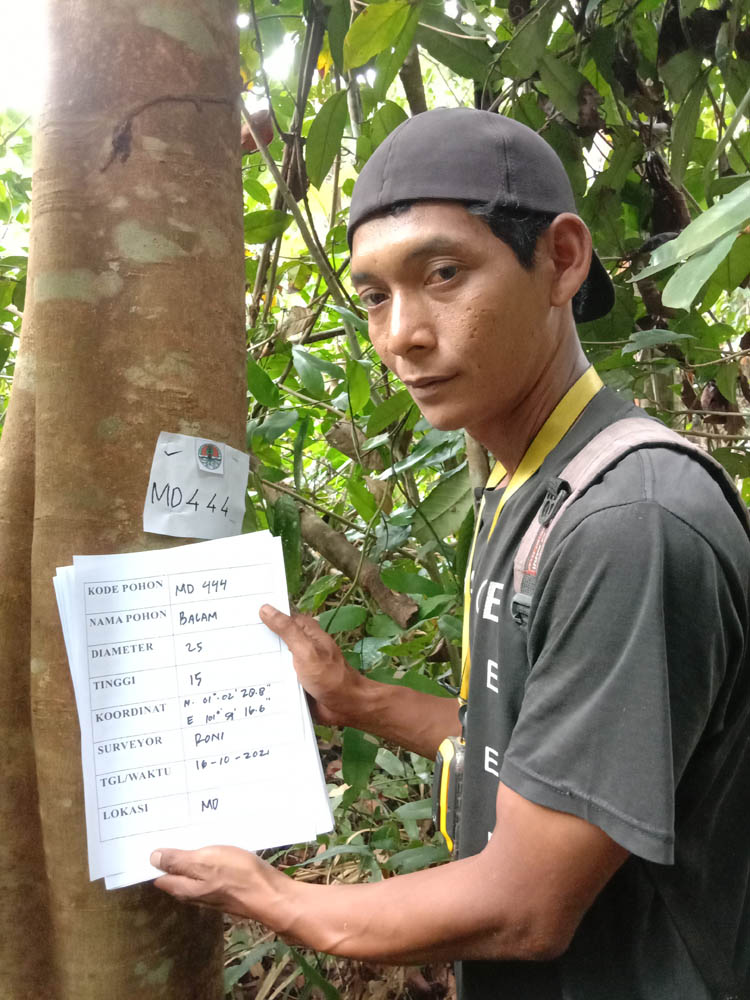 MD 444
KODE POHON MD 444
NAMA POHON BALAM
DIAMETER 25
TINGGI 15
KOORDINAT N. 01°.02' 28.8"
E 101° 59' 16.6"
SURVEYOR RONI
TGL/WAKTU 16-10-2021
LOKASI MD
E
E
E